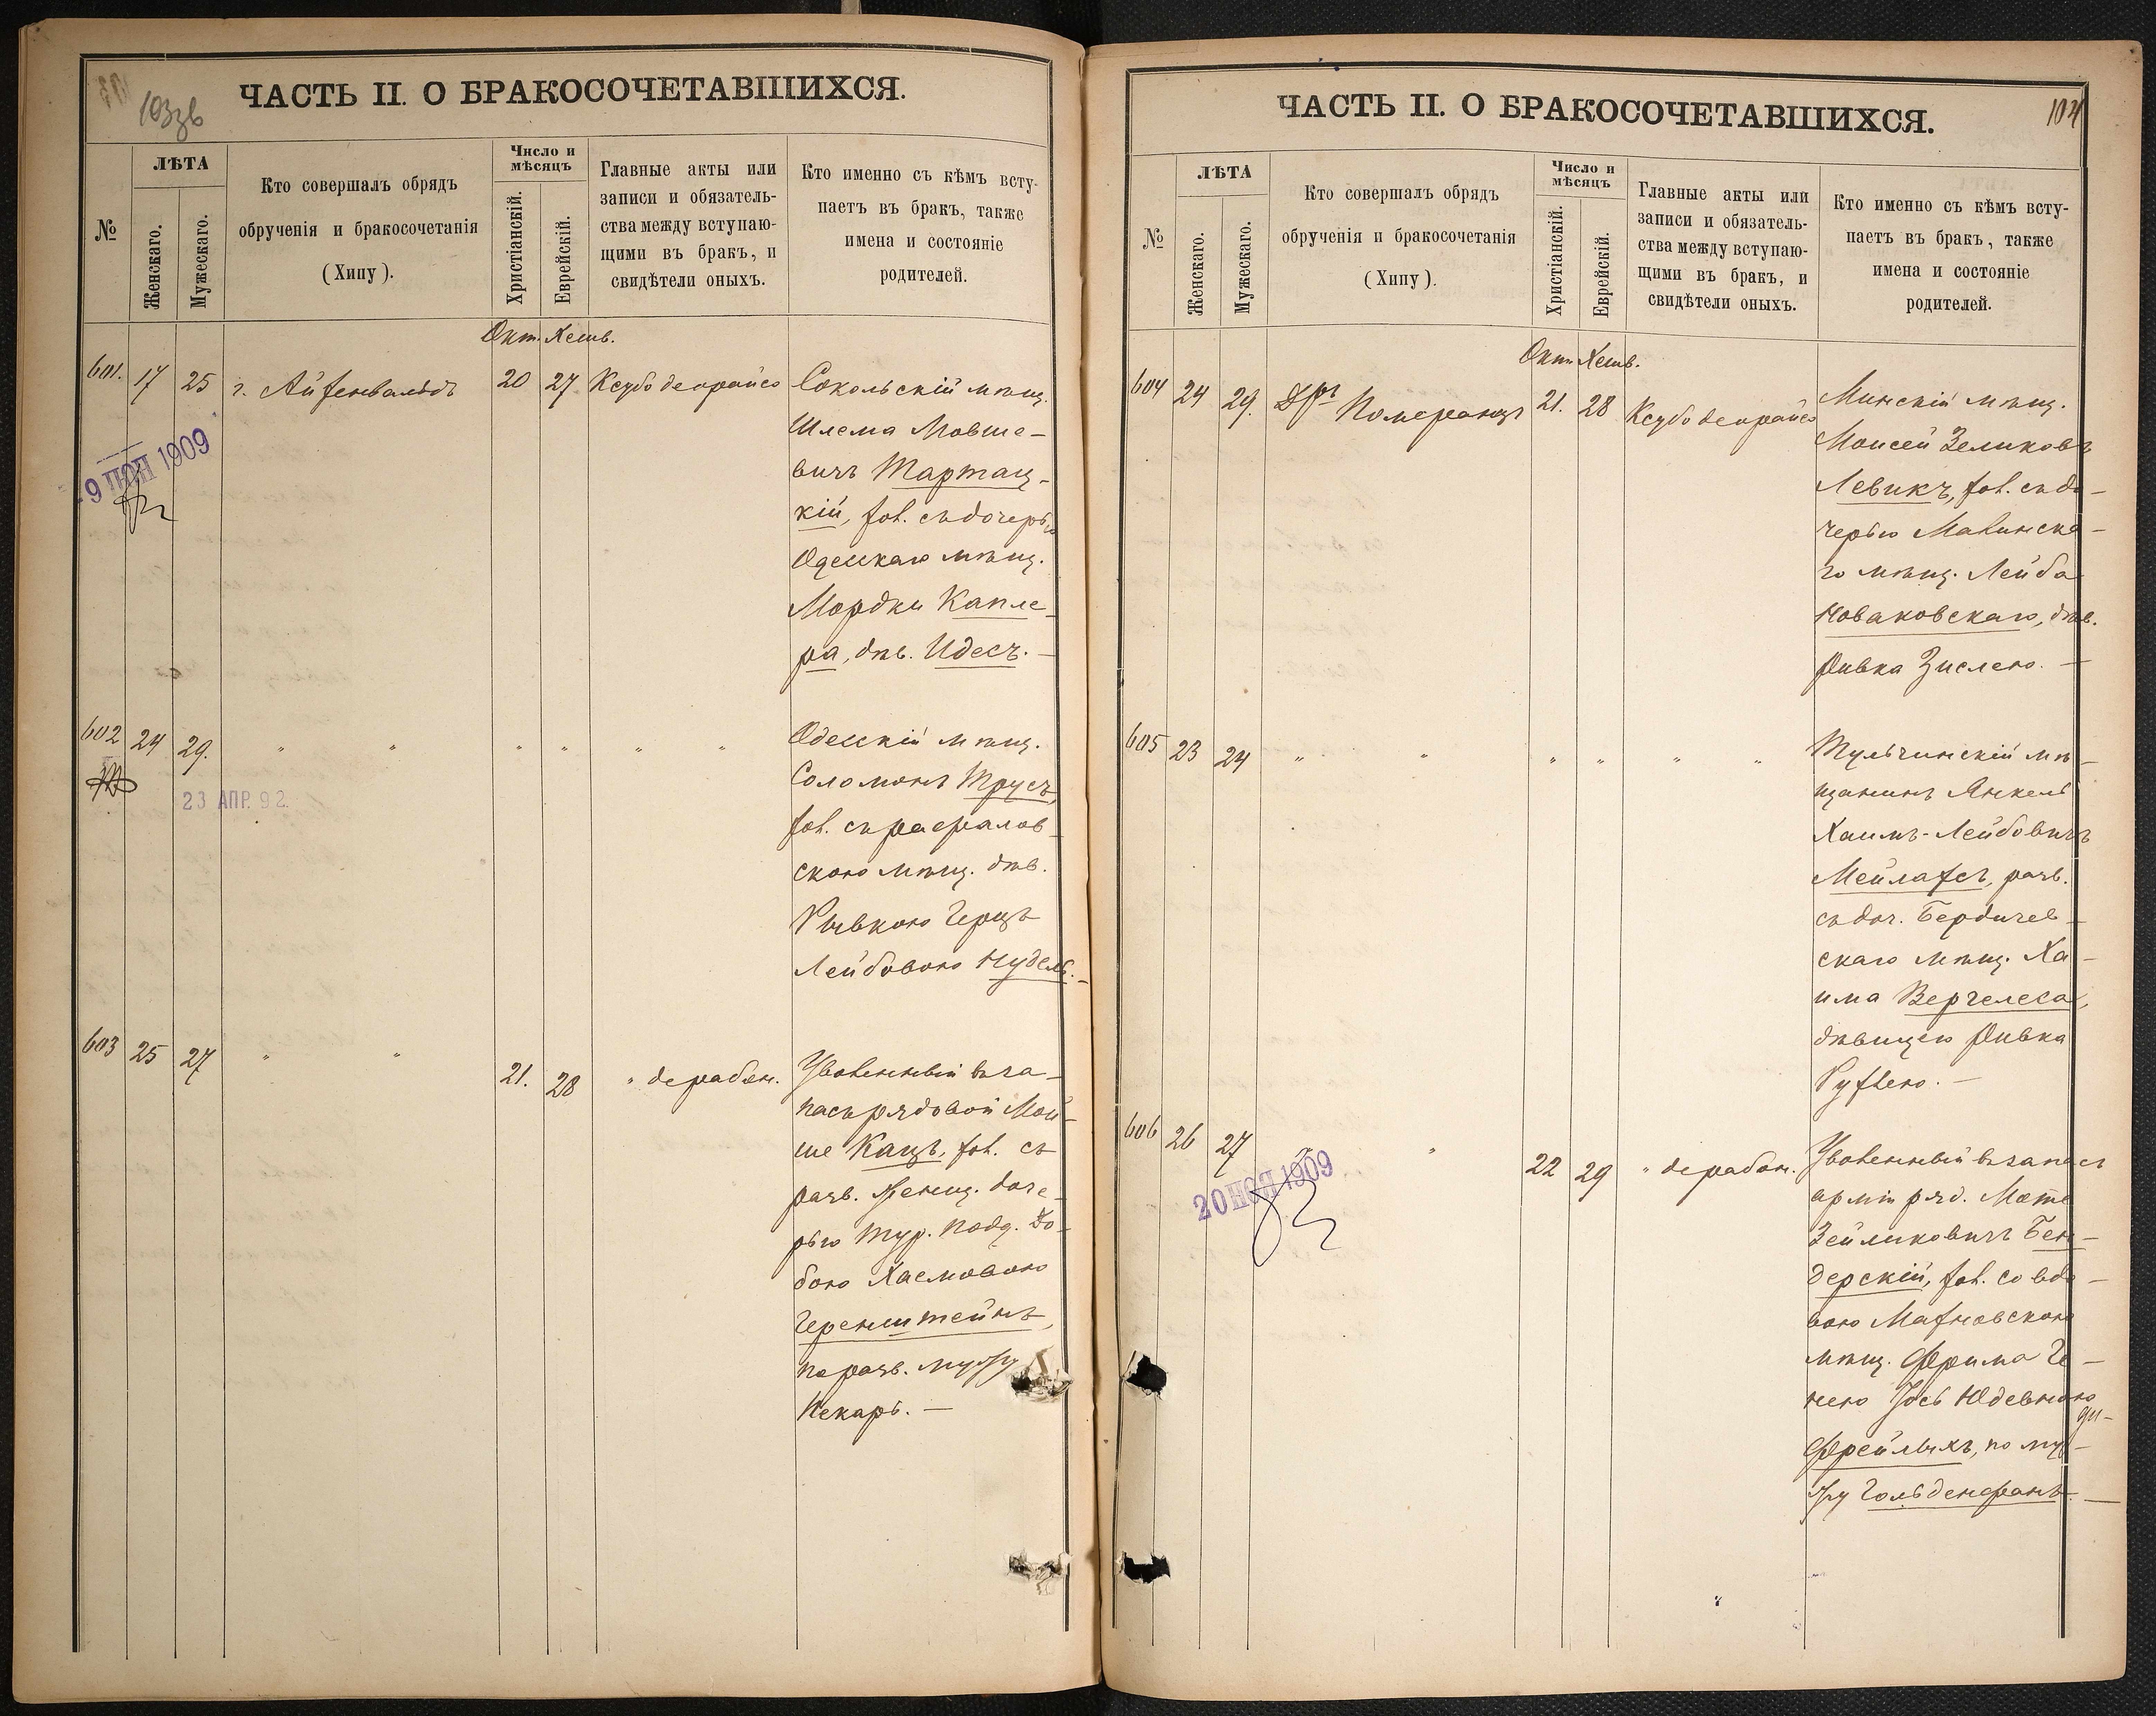 103зв
ЧАСТЬ II. О БРАКОСОЧЕТАВШИХСЯ.
№
ЛѢТА
Женскаго.
Мужескаго.
Кто совершалъ обрядъ
обрученія и бракосочетанія
(Хипу).
Число и
мѣсяцъ
Христіанскій.
Еврейскій.
Главные акты или
записи и обязатель-
ства между вступаю-
щими въ бракъ, и
свидѣтели оныхъ.
Кто именно съ кѣмъ всту-
паетъ въ бракъ, также
имена и состояніе
родителей.
Окт. Хешв.
601. 17 25 г. Айзенвальдъ 20 27 Ксубо деорайсо Сокольскій мѣщ.
Шлема Мовше-
вичъ Тартац-
кій, хол. съ дочерью
Одесскаго мѣщ.
Мордки Капле-
ра, дѣв. Идесъ. —
-9 1909
602 24 29. " " " " " " Одесскій мѣщ.
Соломонъ Трусъ,
хол. съ рафалов-
скою мѣщ. дѣв.
Рывкою Герцъ
Лейбовою Нудель. —
23 АПР. 92.
603 25 27 " " 21. 28 " дерабон. Уволенный въ за-
пасъ рядовой Мой-
ше Кацъ, хол. съ
разв. женщ. доче-
рью тур. подд. До-
бою Хаемовою
Геренштейнъ,
по разв. мужу
Пекарь. —
104
ЧАСТЬ II. О БРАКОСОЧЕТАВШИХСЯ.
№
ЛѢТА
Женскаго.
Мужескаго.
Кто совершалъ обрядъ
обрученія и бракосочетанія
(Хипу).
Число и
мѣсяцъ
Христіанскій.
Еврейскій.
Главные акты или
записи и обязатель-
ства между вступаю-
щими въ бракъ, и
свидѣтели оныхъ.
Кто именно съ кѣмъ всту-
паетъ въ бракъ, также
имена и состояніе
родителей.
Окт. Хешв.
604 24 29. Дръ Померанцъ 21. 28 Ксубо деорайсо Минскій мѣщ.
Моисей Зеликовъ
Левикъ, хол. съ до-
черью Макинска-
го мѣщ. Лейба
Новаковскаго, дѣв.
Ривка Зислею. —
605 23 24 " " " " " " Тульчинскій мѣ-
щанинъ Янкель
Хаимъ-Лейбовичъ
Мейлахсъ, разв.
съ доч. Бердичев-
скаго мѣщ. Ха-
има Верчелеса,
дѣвицею Ривка
Рухлею. —
606 26 27 " " 22 29 " дерабон. Уволенный въ запасъ
арміи ряд. Моте
Зейликовичъ Бен-
дерскій, хол. со вдо-
вою Махновскою
мѣщ. Фрима Ге-
нею Іось Юдевною
Фрейлихъ, по му-
жу Гольденфанъ. —
20 НОЯ 1909